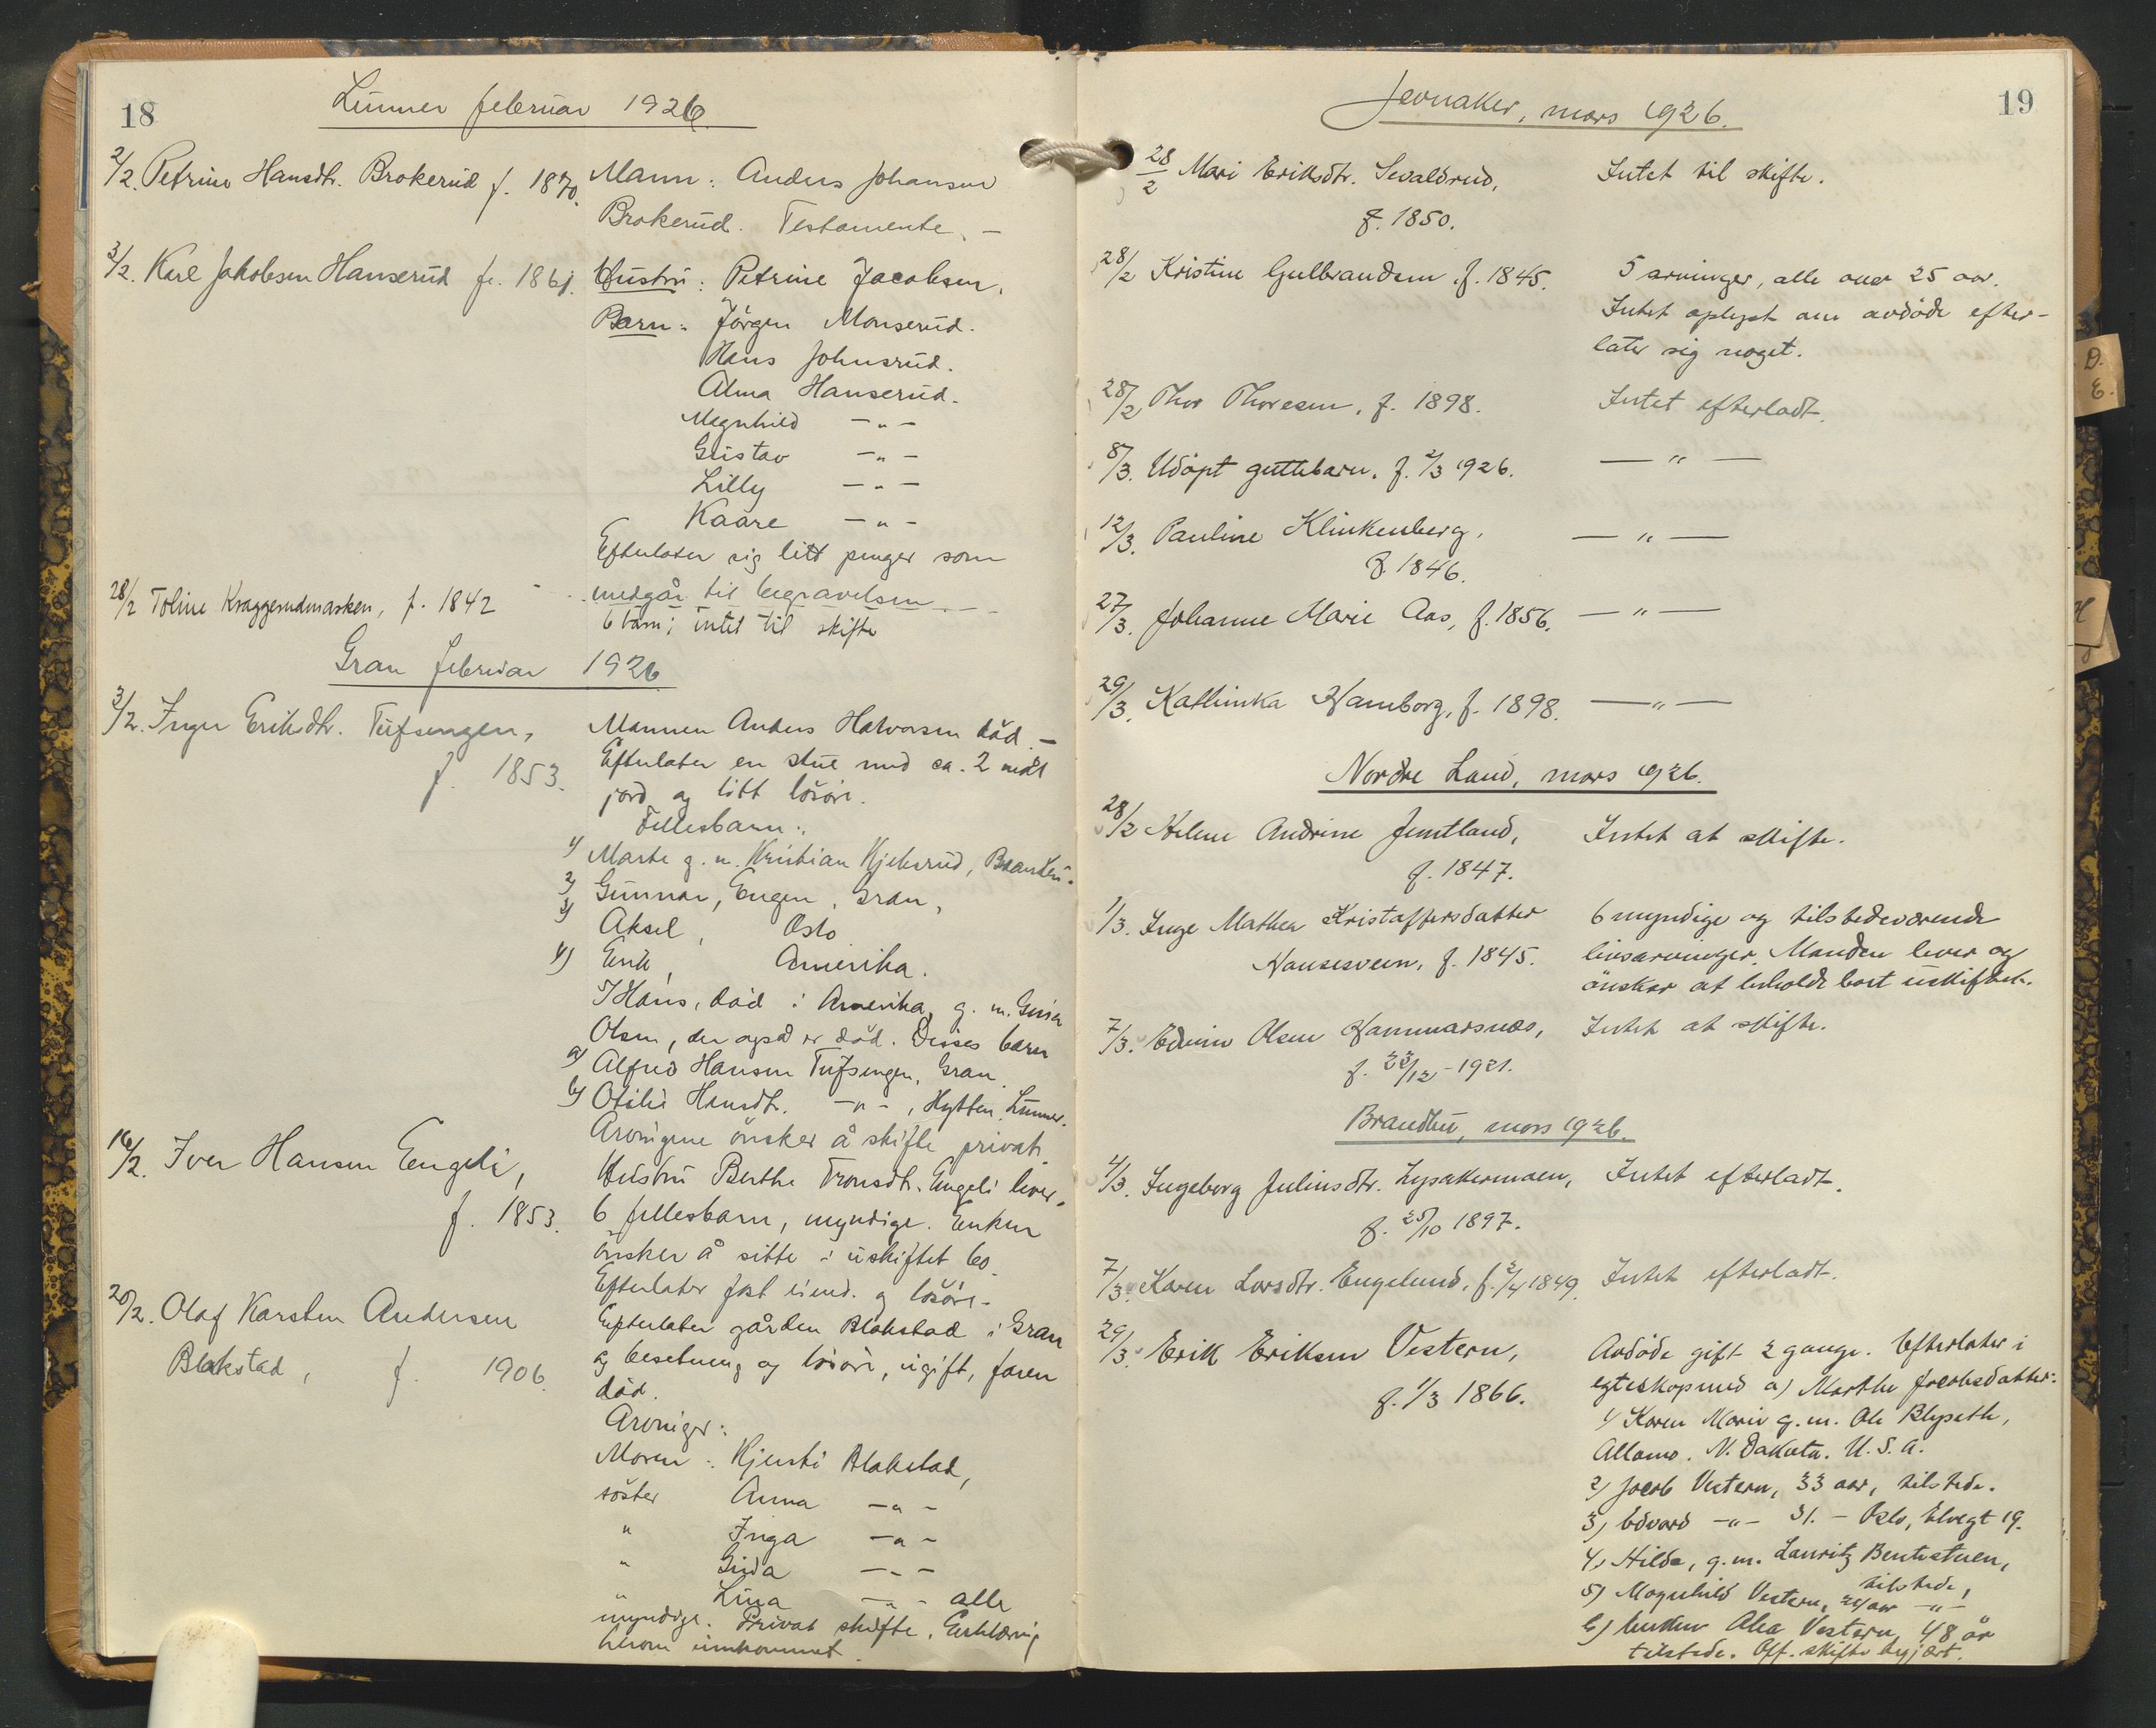 18
Lunner februar 1926
2/2. Petrine Hansdtr. Brokerud f. 1870. Mann: Anders Johansen
Brokerud. Testamente. –
3/2. Karl Jakobsen Hanserud f. 1861. Hustru: Petrine Jacobsen,
Barn: Jörgen Monserud.
Hans Johnsrud.
Alma Hanserud.
Magnhild – „ –
Gustav – „ –
Lilly – „ –
Kaare – „ –
Efterlater sig litt penger som
medgår til begravelsen
28/2 Toline Kraggerudmarken, f. 1842 6 barn; intet til skifte
Gran februar 1926
3/2. Inger Eriksdtr. Tufsengen, Mannen Anders Halvorsen död. –
f. 1853. Efterlater en stue med ca. 2 mål
jord og litt lösöre.
Fellesbarn:
1) Marte g. m. Kristian Kjekerud, Brandbu.
2) Gunnar, Engen, Gran,
3) Aksel, Oslo
4) Erik, Amerika.
Hans, död i Amerika, g. m.
Olsen, der også er död. Disses barn
a) Alfred Hansen Tufsengen, Gran.
b) Otilie Hansdtr. – „ –, Hytten, Lunner.
Arvingene önsker å skifte privat.
16/2. Iver Hansen Engeli, Hustru Berthe Tronsdtr. Engeli lever.
f. 1853. 6 fellesbarn, myndige. Enken
önsker å sitte i uskiftet bo.
Efterlater fast eiend. og lösöre.
20/2. Olaf Karsten Andersen Efterlater gården Blakstad i Gran
Blakstad, f. 1906. og besetning og lösöre, ugift, faren
död.
Arvinger:
Moren: Kjersti Blakstad,
söster Anna – „ –
„ Inga – „ –
„ Gida – „ –
„ Lina – „ – alle
myndige. Privat skifte. Erklæring
herom innkommet.
19
Jevnaker, mars 1926.
28/2 Mari Eriksdtr. Sevaldrud, Intet til skifte.
f. 1850.
28/2 Kristine Gulbrandsen, f. 1845. 5 arvinger, alle over 25 aar.
Intet oplyst om avdöde efter-
later sig noget.
28/2 Thor Thoresen, f. 1898. Intet efterladt.
8/3. Udöpt guttebarn, f. 2/3 1926. – „ –
12/3. Pauline Klinkenberg, – „ –
f. 1846.
27/3. Johanne Marie Aas, f. 1856. – „ –
29/3. Kathinka Hamborg, f. 1898. – „ –
Nordre Land, mars 1926.
28/2 Helene Andrine Jemtland, Intet at skifte.
f. 1847.
1/3. Inge Mathea Kristoffersdatter 6 myndige og tilstedeværende
Hansesveen, f. 1845. livsarvinger. Manden lever og
önsker at beholde boet uskiftet.
7/3. Edvin Olsen Hammarsnes, Intet at skifte.
f. 23/12 - 1921.
Brandbu, mars 1926.
4/3. Ingeborg Juliusdtr. Lysakermoen, Intet efterladt.
f. 25/10 1897.
7/3. Karen Larsdtr. Engelund, f. 2/4 1849. Intet efterladt.
29/3. Erik Eriksen Vestern, Avdöde gift 2 gange. Efterlater i
f. 1/3 1866. egteskap med a) Marthe Jacobsdatter:
1) Karen Marie g. m. Ole Blyseth,
Allamo. N. Dakota. U. S. A.
2) Jacob Vestern, 33 aar, tilstede.
3) Edvard – „ – 31. – Oslo, Elvegt 19.
4) Hilda, g. m. Lauritz Bentestuen,
tilstede,
5) Magnhild Vestern, 24 aar – „ –
b) Enken Alea Vestern, 48 år
tilstede. Off. skifte begjært.
D.
E.
H